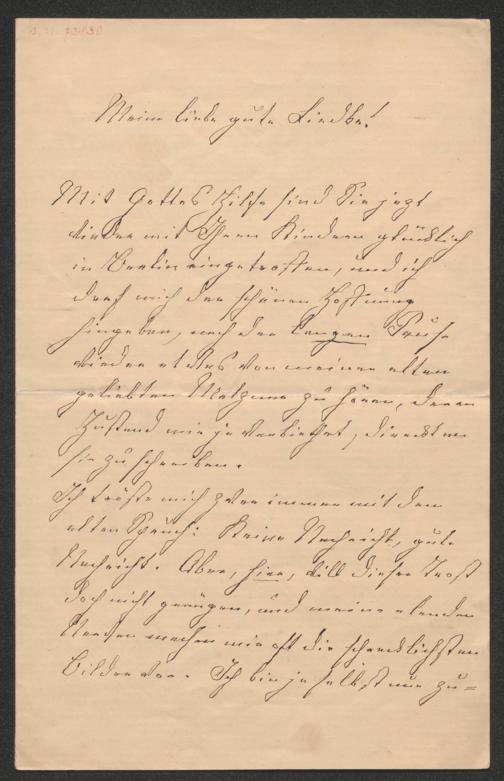 Meine liebe gute Liedke!
Mit Gottes Hilfe sind Sie jetzt
wieder mit Ihren Kindern glücklich
in Berlin eingetroffen, und ich
darf mich der schönen Hoffnung
hingeben, nach der langen Pause
wieder etwas von meiner alten
geliebten zu hören, deren
Zustand mir ja verbiethet, direckt an
sie zu schreiben.
Ich tröste mich zwar immer mit dem
alten Spruch: Keine Nachricht, gute
Nachricht. Aber, hier, will dieser Trost
doch nicht genügen, und meine elenden
Nerven machen mir oft die schrecklichsten
Bilder vor. Ich bin ja selbst nur zu=